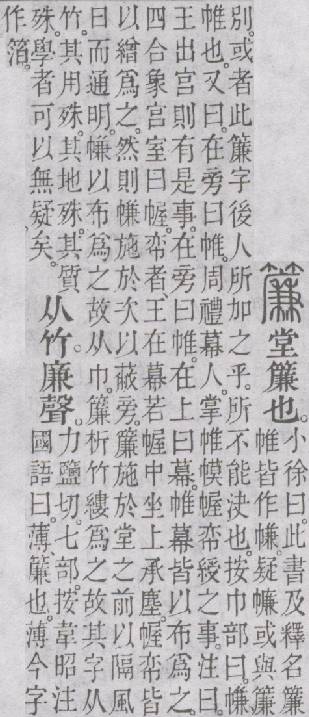 簾堂簾也。
小徐曰。此書及釋名簾
帷皆作㡘。疑㡘或與簾
別。或者此簾字後人所加之乎。所不能決也。按巾部曰。㡘
帷也。又曰。在旁曰帷。周禮幕人。掌帷幙幄帟綬之事。注曰。
王出宮則有是事。在旁曰帷。在上曰幕。帷幕皆以布爲之。
四合象宮室曰幄。帟者、王在幕若幄中坐上承塵。幄帟皆
以繒爲之。然則㡘施於次以蔽旁。簾施於堂之前以隔風
日而通明。㡘以布爲之。故从巾。簾析竹縷爲之。故其字从
竹。其用殊。其地殊。其質
殊。學者可以無疑矣。
从竹。廉聲。
力鹽切。七部。按韋昭注
國語曰。薄、簾也。薄今字
作箔。